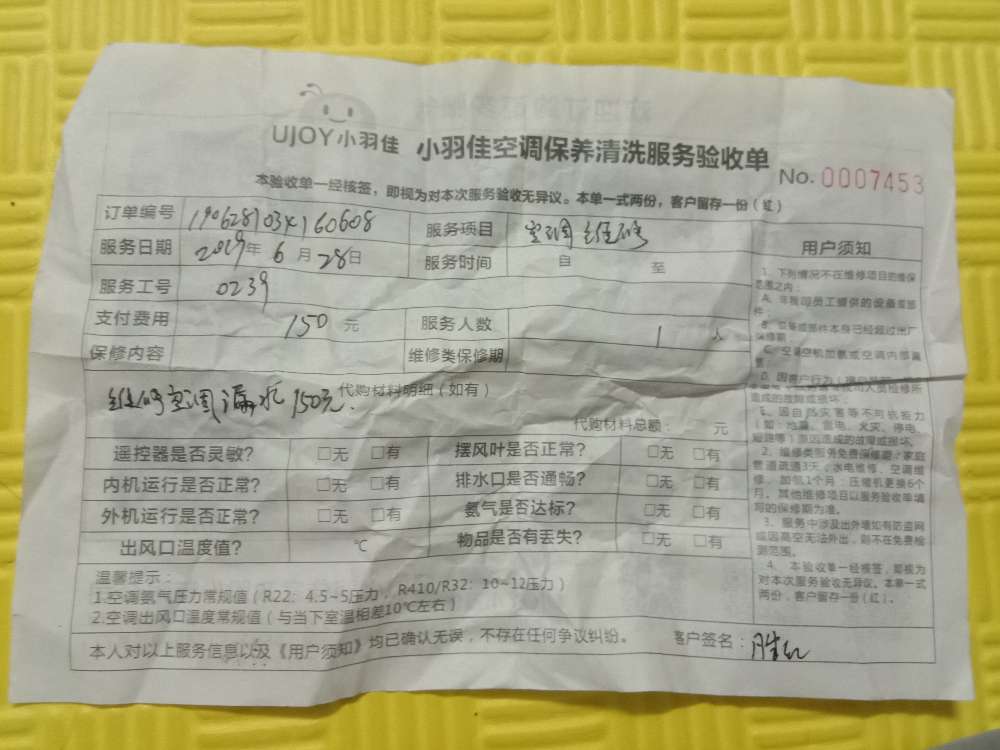 UJOY小羽佳 小羽佳空调保养清洗服务验收单
No. 0007453
本验收单一经核签，即视为对本次服务验收无异议。本单一式两份，客户留存一份（红）
订单编号 服务项目 空调维修
服务日期 2019年 6月 28日 服务时间 自 至
服务工号 0239
支付费用 150 元 服务人数 1 人
保修内容 维修类保修期
代购材料明细（如有）
维修空调漏水150元.
代购材料总额： 元
遥控器是否灵敏？ □无 □有 摆风叶是否正常？ □无 □有
内机运行是否正常？ □无 □有 排水口是否通畅？ □无 □有
外机运行是否正常？ □无 □有 氨气是否达标？ □无 □有
出风口温度值？ ℃ 物品是否有丢失？ □无 □有
温馨提示：
1.空调氨气压力常规值（R22：4.5~5压力，R410/R32：10~12压力）
2.空调出风口温度常规值（与当下室温相差10℃左右）
本人对以上服务信息以及《用户须知》均已确认无误，不存在任何争议纠纷。 客户签名：
用户须知
1、下列情况不在维修项目的维保
范围之内：
A、非我司员工提供的设备或部
件；
B、设备或部件本身已经超过出厂
保修期
C、空调空机加氨或空调内部
造成的故障或损坏；
E、因自然灾害等不可抗拒力
（如：地震、雷电、火灾、停电、
短路等）原因造成的故障或损坏。
2、维修类服务免费保修期：家庭
管道疏通3天，水电维修、空调维
修、加氨1个月；压缩机更换6个
月，其他维修项目以服务验收单填
写的保修期为准。
3、服务中涉及出外墙如有防盗网
或因高空无法外出，则不在免费检
测范围。
4、本验收单一经核签，即视为
对本次服务验收无异议。本单一式
两份，客户留存一份（红）。